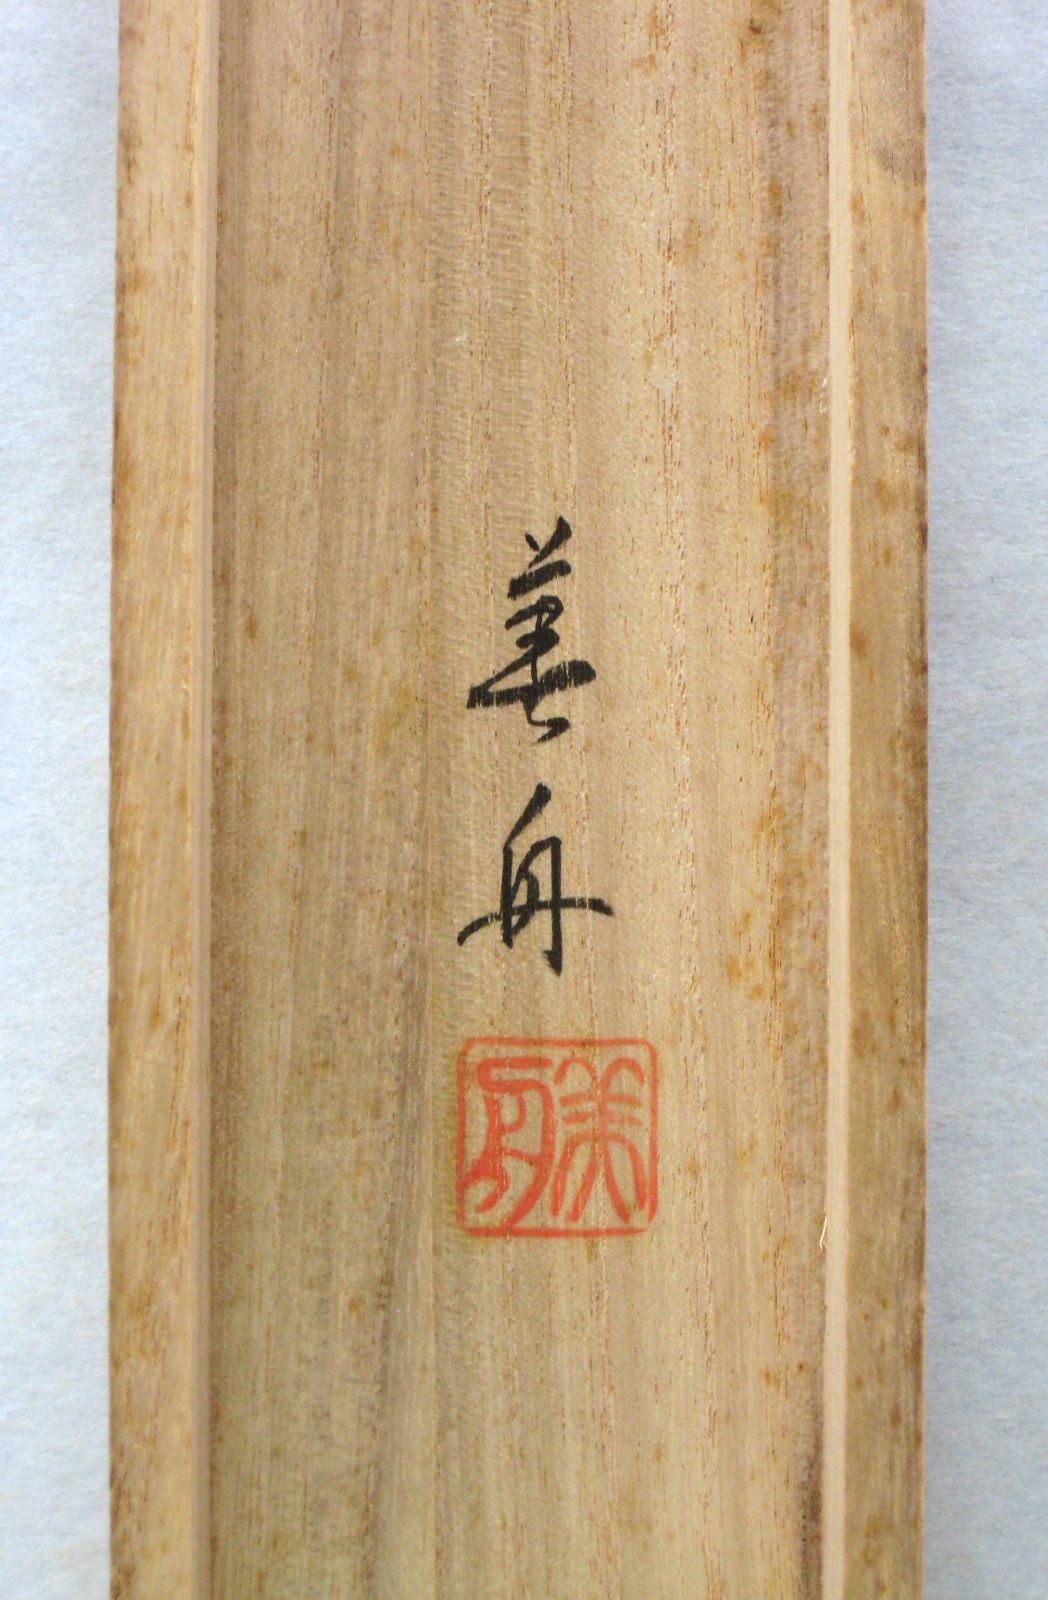 美舟
美舟